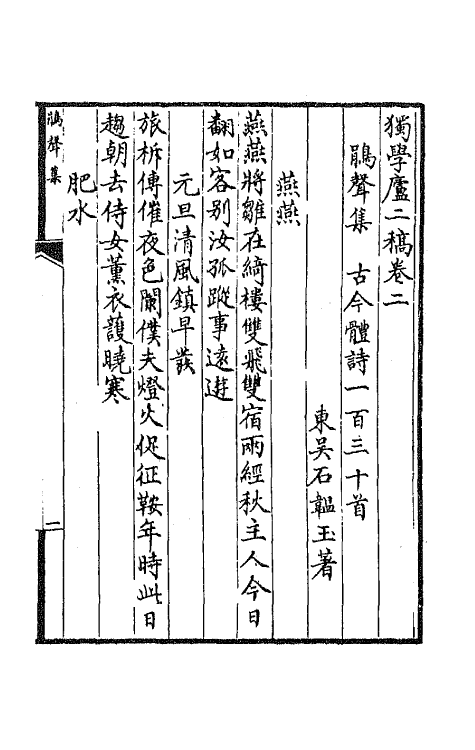 獨學廬二稿卷二
鵑聲集 古今體詩一百三十首
東吳石韞玉著
燕燕
燕燕將雛在綺樓雙飛雙宿兩經秋主人今日
翻如客别汝孤蹤事遠遊
元旦清風鎮早發
旅柝傳催夜色闌僕夫燈火促征鞍年時此日
趨朝去侍女薰衣護曉寒
肥水
鵑聲集
一